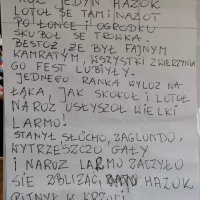 RÓZ JEDYN HAZOK
LOTOŁ SE TAM I NAZOT
PO ŁONCE I OGRÓDKU
SKUBOŁ SE TROWKA.
BESTÓŻ, ŻE BYŁ FAJNYM
KAMRATYM, WSZYSTKI ZWIERZYNTA
GO FEST LUBIYŁY.
JEDNEGO RANKA WYLOZ NA
ŁĄKA, JAK SKOKOŁ I LOTOŁ
NAROZ USŁYSZOŁ WIELKI
LARMO!
STANYŁ, SŁUCHO, ZAGLONDO,
WYTRZESZCZO GAŁY
I NAROZ LARMO ZACZYŁO
SIE ZBLIŻAĆ, HAZOK